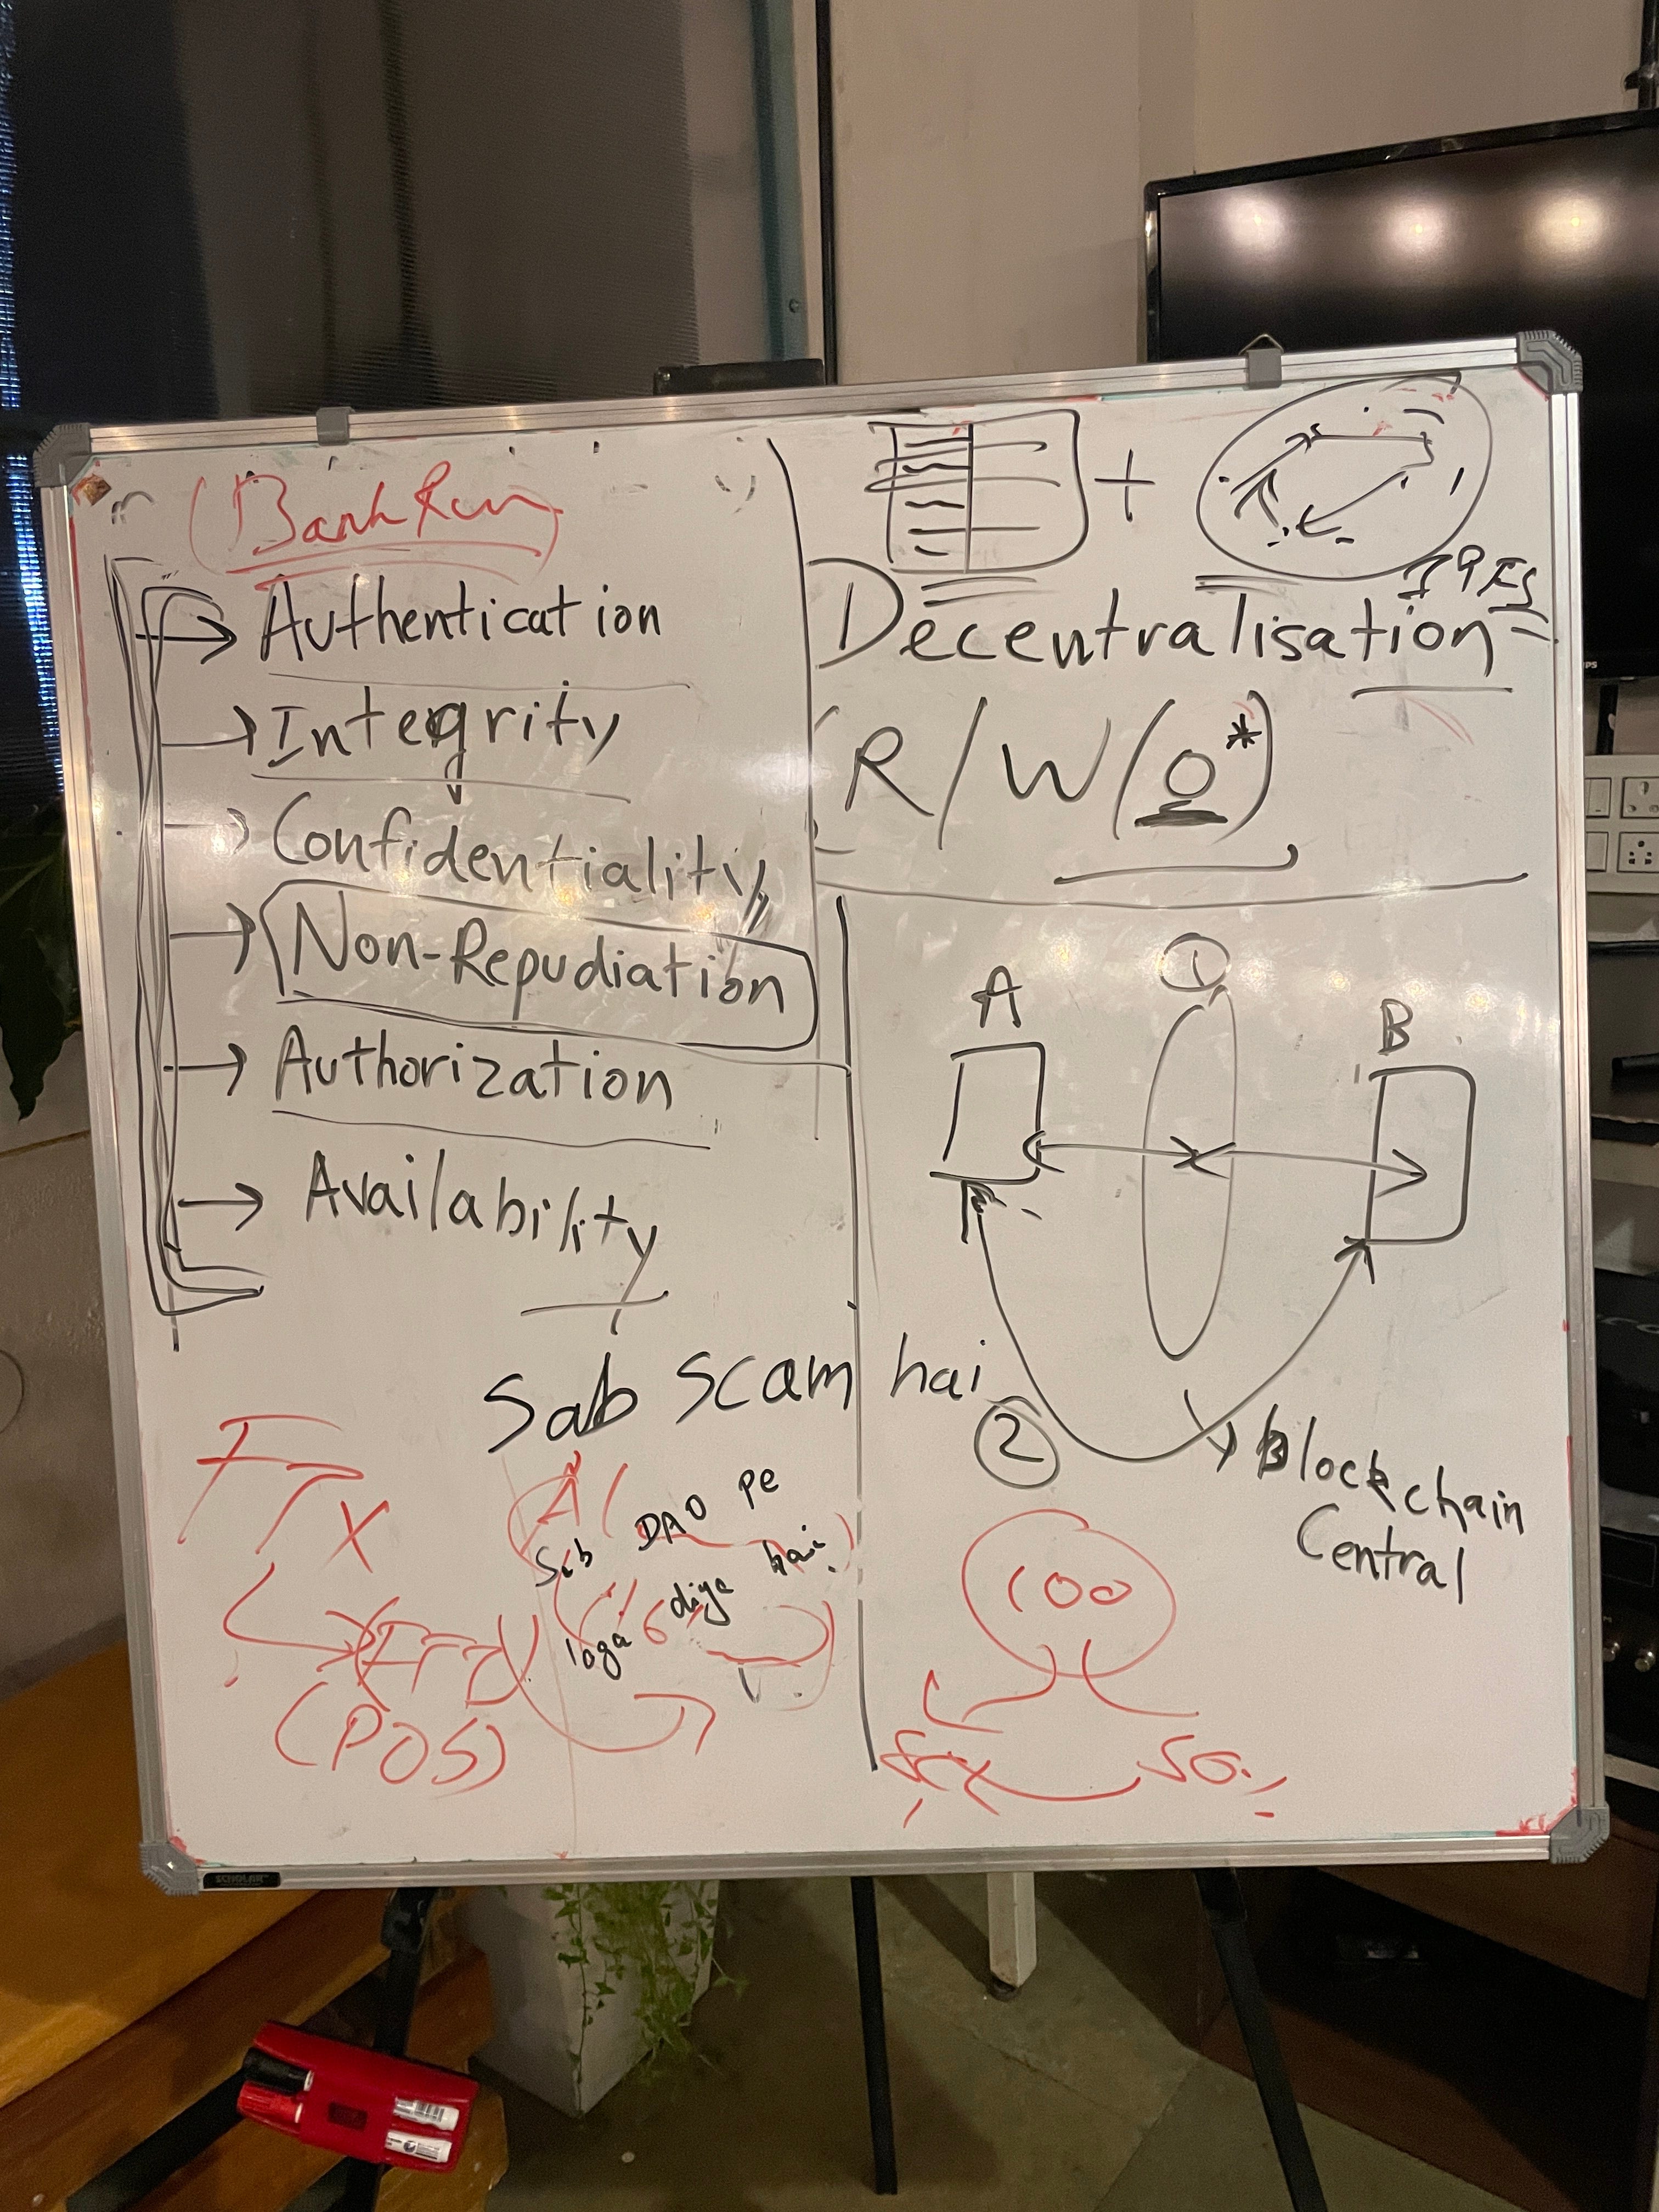 Bank Run
Authentication
Integrity
Confidentiality
Non-Repudiation
Authorization
Availability
+
IPFS
Decentralisation
R/W(O*)
1
A
B
2
Blockchain
Central
Sab scam hai
FTX
A
Sab DAO pe
loga diya hai
(POS)
100
50
SCHOLAR